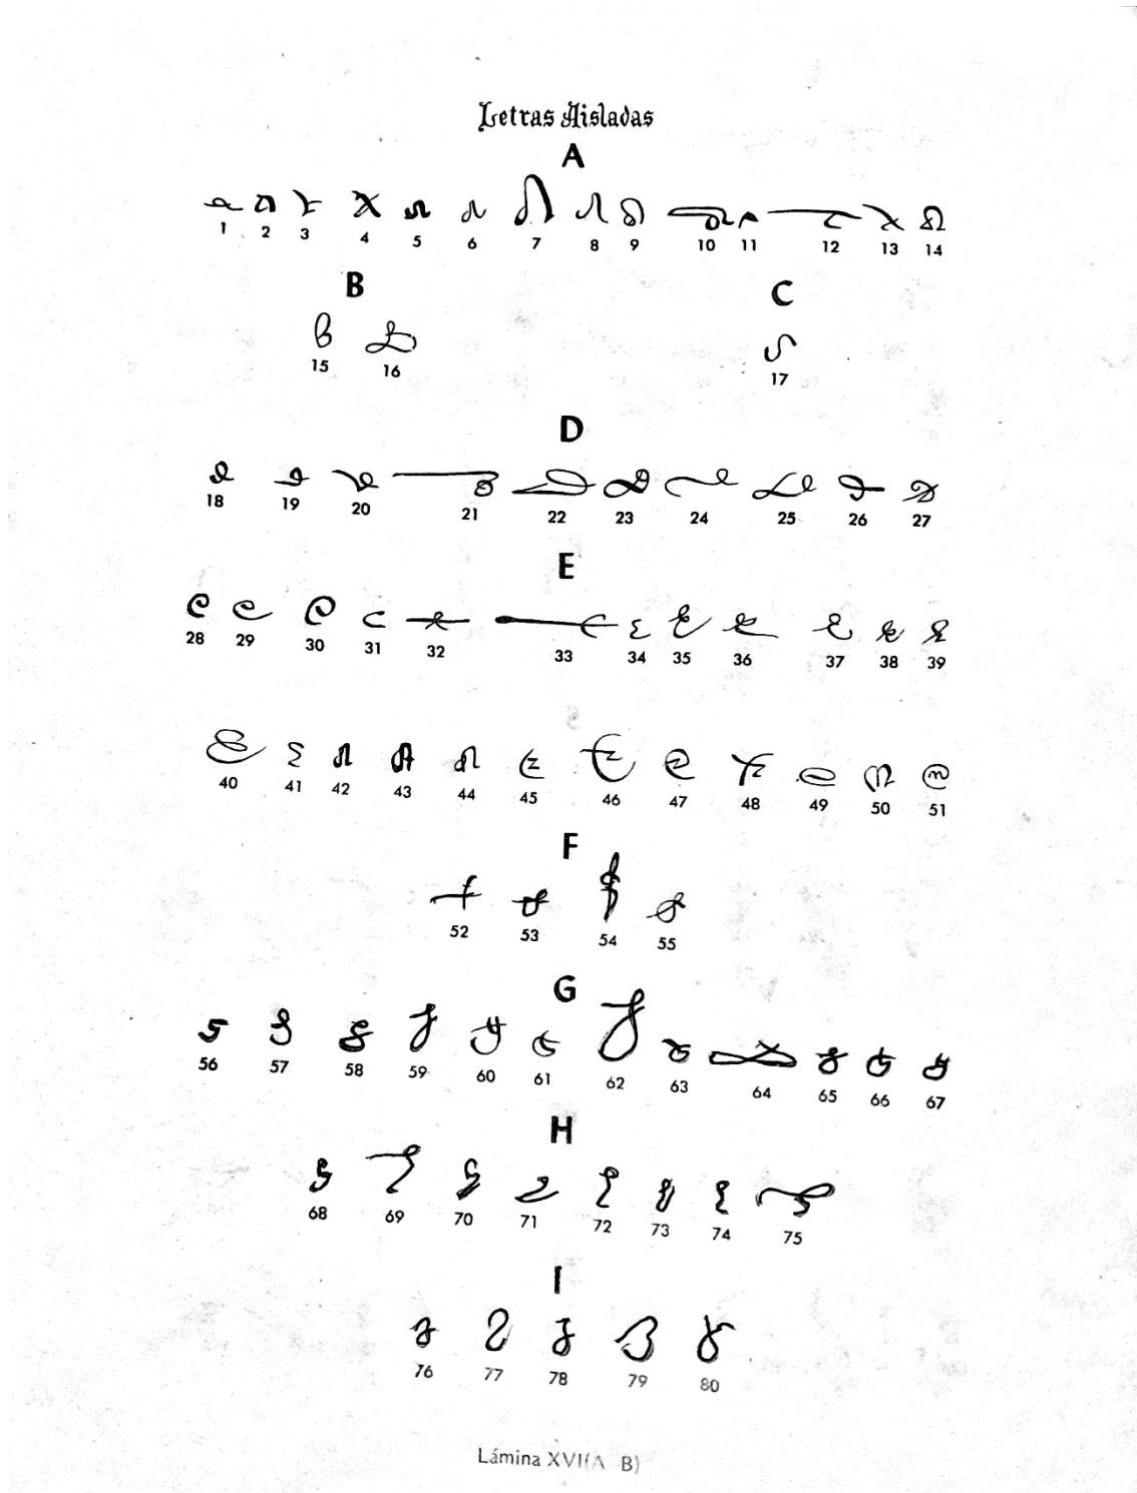 Letras Aisladas
A
1 2 3 4 5 6 7 8 9 10 11 12 13 14
B C
15 16 17
D
18 19 20 21 22 23 24 25 26 27
E
28 29 30 31 32 33 34 35 36 37 38 39
40 41 42 43 44 45 46 47 48 49 50 51
F
52 53 54 55
G
56 57 58 59 60 61 62 63 64 65 66 67
H
68 69 70 71 72 73 74 75
I
76 77 78 79 80
Lámina XVI(A B)